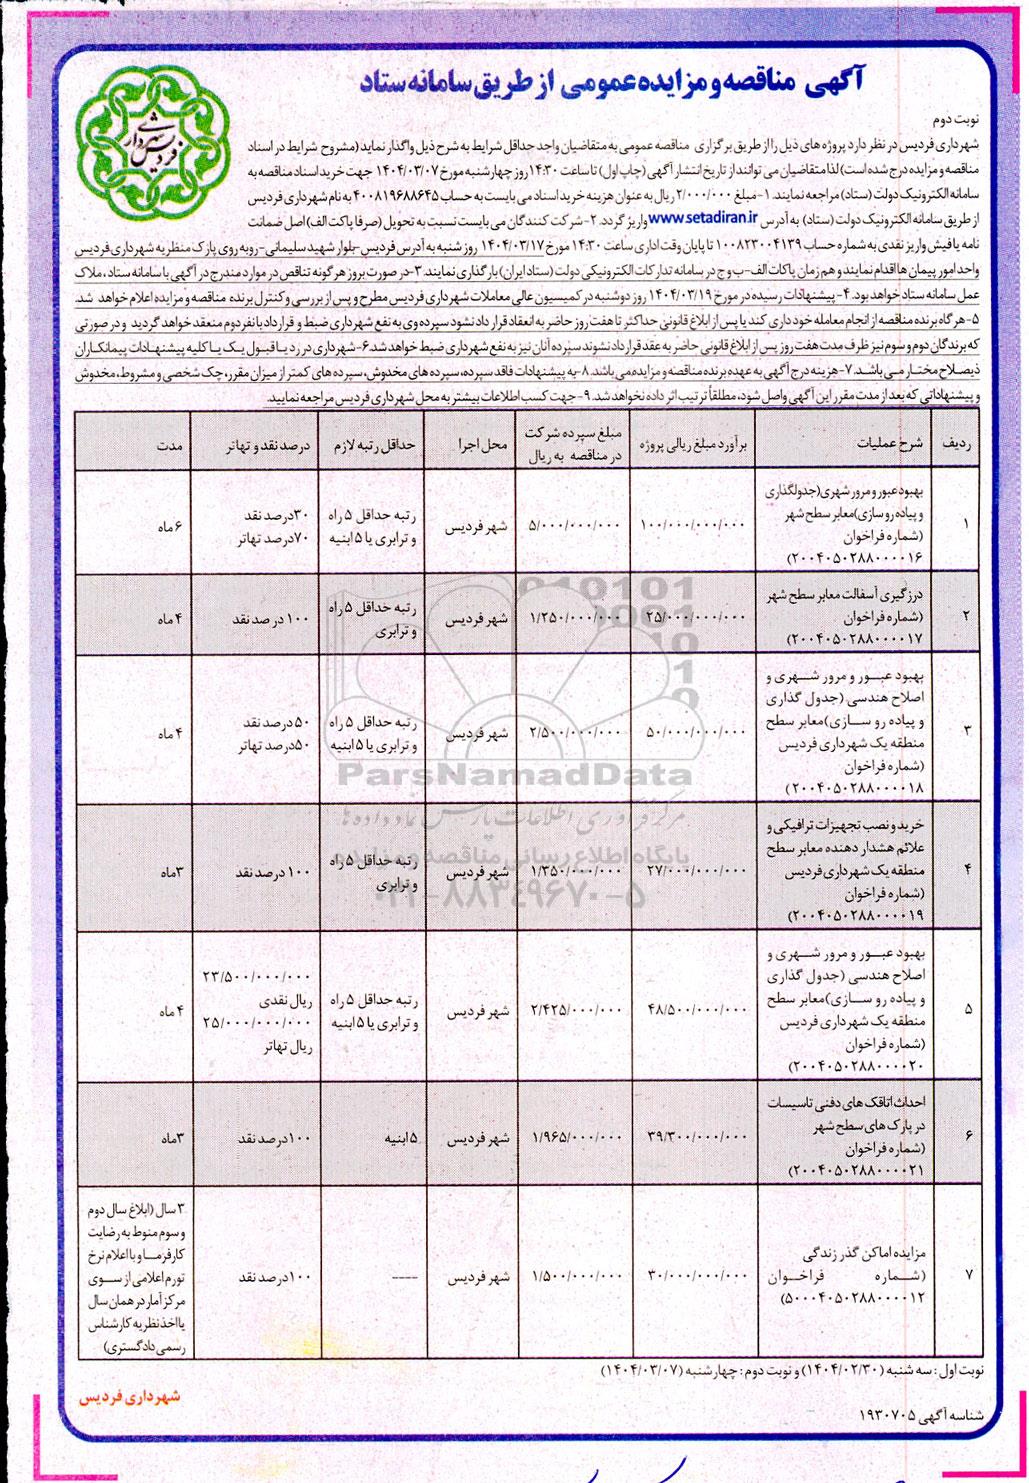 آگهی مناقصه و مزایده عمومی از طریق سامانه ستاد
شهرداری فردیس
نوبت دوم
شهرداری فردیس در نظر دارد پروژه های ذیل را از طریق برگزاری مناقصه عمومی به متقاضیان واجد حداقل شرایط به شرح ذیل واگذار نماید (مشروح شرایط در اسناد
مناقصه و مزایده درج شده است) لذا متقاضیان می توانند از تاریخ انتشار آگهی (چاپ اول) تا ساعت ۱۴:۳۰ روز چهارشنبه مورخ ۱۴۰۴/۰۳/۰۷ جهت خرید اسناد مناقصه به
سامانه الکترونیک دولت (ستاد) مراجعه نمایند. ۱-مبلغ ۲/۰۰۰/۰۰۰ ریال به عنوان هزینه خرید اسناد می بایست به حساب ۴۰۰۸۱۹۶۸۸۶۴۵ به نام شهرداری فردیس
از طریق سامانه الکترونیک دولت (ستاد) به آدرس www.setadiran.ir واریز گردد. ۲-شرکت کنندگان می بایست نسبت به تحویل (صرفا پاکت الف) اصل ضمانت
نامه یا فیش واریز نقدی به شماره حساب ۱۰۰۸۲۳۰۰۴۱۳۹ تا پایان وقت اداری ساعت ۱۴:۳۰ مورخ ۱۴۰۴/۰۳/۱۷ روز شنبه به آدرس فردیس-بلوار شهید سلیمانی-روبه روی پارک منظریه شهرداری فردیس
واحد امور پیمان ها اقدام نمایند و هم زمان پاکات الف-ب و ج در سامانه تدارکات الکترونیکی دولت (ستاد ایران) بارگذاری نمایند. ۳-در صورت بروز هرگونه تناقص در موارد مندرج در آگهی با سامانه ستاد، ملاک
عمل سامانه ستاد خواهد بود. ۴-پیشنهادات رسیده در مورخ ۱۴۰۴/۰۳/۱۹ روز دوشنبه در کمیسیون عالی معاملات شهرداری فردیس مطرح و پس از بررسی و کنترل برنده مناقصه و مزایده اعلام خواهد شد.
۵-هر گاه برنده مناقصه از انجام معامله خودداری کند یا پس از ابلاغ قانونی حداکثر تا هفت روز حاضر به انعقاد قرار داد نشود سپرده وی به نفع شهرداری ضبط و قرارداد با نفر دوم منعقد خواهد گردید و در صورتی
که برندگان دوم و سوم نیز ظرف مدت هفت روز پس از ابلاغ قانونی حاضر به عقد قرار داد نشوند سپرده آنان نیز به نفع شهرداری ضبط خواهد شد. ۶-شهرداری در رد یا قبول یک یا کلیه پیشنهادات پیمانکاران
ذیصلاح مختار می باشد. ۷-هزینه درج آگهی به عهده برنده مناقصه و مزایده می باشد. ۸-به پیشنهادات فاقد سپرده، سپرده های مخدوش، سپرده های کمتر از میزان مقرر، چک شخصی و مشروط، مخدوش
و پیشنهاداتی که بعد از مدت مقرر این آگهی واصل شود، مطلقاً ترتیب اثر داده نخواهد شد. ۹-جهت کسب اطلاعات بیشتر به محل شهرداری فردیس مراجعه نمایید.
ردیف شرح عملیات برآورد مبلغ ریالی پروژه مبلغ سپرده شرکت در مناقصه به ریال محل اجرا حداقل رتبه لازم درصد نقد و تهاتر مدت
۱ بهبود عبور و مرور شهری (جدولگذاری و پیاده رو سازی) معابر سطح شهر (شماره فراخوان ۲۰۰۴۰۵۰۲۸۸۰۰۰۰۱۶) ۱۰۰/۰۰۰/۰۰۰/۰۰۰ ۵/۰۰۰/۰۰۰/۰۰۰ شهر فردیس رتبه حداقل ۵ راه و ترابری یا ۵ ابنیه ۳۰درصد نقد ۷۰درصد تهاتر ۶ ماه
۲ درزگیری آسفالت معابر سطح شهر (شماره فراخوان ۲۰۰۴۰۵۰۲۸۸۰۰۰۰۱۷) ۲۵/۰۰۰/۰۰۰/۰۰۰ ۱/۲۵۰/۰۰۰/۰۰۰ شهر فردیس رتبه حداقل ۵ راه و ترابری ۱۰۰ درصد نقد ۴ ماه
۳ بهبود عبور و مرور شهری و اصلاح هندسی (جدول گذاری و پیاده رو سازی) معابر سطح منطقه یک شهرداری فردیس (شماره فراخوان ۲۰۰۴۰۵۰۲۸۸۰۰۰۰۱۸) ۵۰/۰۰۰/۰۰۰/۰۰۰ ۲/۵۰۰/۰۰۰/۰۰۰ شهر فردیس رتبه حداقل ۵ راه و ترابری یا ۵ ابنیه ۵۰ درصد نقد ۵۰درصد تهاتر ۴ ماه
۴ خرید و نصب تجهیزات ترافیکی و علائم هشدار دهنده معابر سطح منطقه یک شهرداری فردیس (شماره فراخوان ۲۰۰۴۰۵۰۲۸۸۰۰۰۰۱۹) ۲۷/۰۰۰/۰۰۰/۰۰۰ ۱/۳۵۰/۰۰۰/۰۰۰ شهر فردیس رتبه حداقل ۵ راه و ترابری ۱۰۰ درصد نقد ۳ ماه
۵ بهبود عبور و مرور شهری و اصلاح هندسی (جدول گذاری و پیاده رو سازی) معابر سطح منطقه یک شهرداری فردیس (شماره فراخوان ۲۰۰۴۰۵۰۲۸۸۰۰۰۰۲۰) ۴۸/۵۰۰/۰۰۰/۰۰۰ ۲/۴۲۵/۰۰۰/۰۰۰ شهر فردیس رتبه حداقل ۵ راه و ترابری یا ۵ ابنیه ۲۳/۵۰۰/۰۰۰/۰۰۰ ریال نقدی ۲۵/۰۰۰/۰۰۰/۰۰۰ ریال تهاتر ۴ ماه
۶ احداث اتاقک های دفنی تاسیسات در پارک های سطح شهر (شماره فراخوان ۲۰۰۴۰۵۰۲۸۸۰۰۰۰۲۱) ۳۹/۳۰۰/۰۰۰/۰۰۰ ۱/۹۶۵/۰۰۰/۰۰۰ شهر فردیس ۵ ابنیه ۱۰۰درصد نقد ۳ ماه
۷ مزایده اماکن گذر زندگی (شماره فراخوان ۵۰۰۰۴۰۵۰۲۸۸۰۰۰۰۱۲) ۳۰/۰۰۰/۰۰۰/۰۰۰ ۱/۵۰۰/۰۰۰/۰۰۰ شهر فردیس ---- ۱۰۰درصد نقد ۳ سال (ابلاغ سال دوم و سوم منوط به رضایت کارفرما و با اعلام نرخ تورم اعلامی از سوی مرکز آمار در همان سال یا اخذ نظریه کارشناس رسمی دادگستری)
ParsNamadData
مرکز فرآوری اطلاعات پارس نماد داده ها
پایگاه اطلاع رسانی مناقصه و مزایده
۰۲۱-۸۸۳۴۹۶۷۰-۵
نوبت اول: سه شنبه (۱۴۰۴/۰۲/۳۰) و نوبت دوم: چهارشنبه (۱۴۰۴/۰۳/۰۷)
شهرداری فردیس
شناسه آگهی ۱۹۳۰۷۰۵